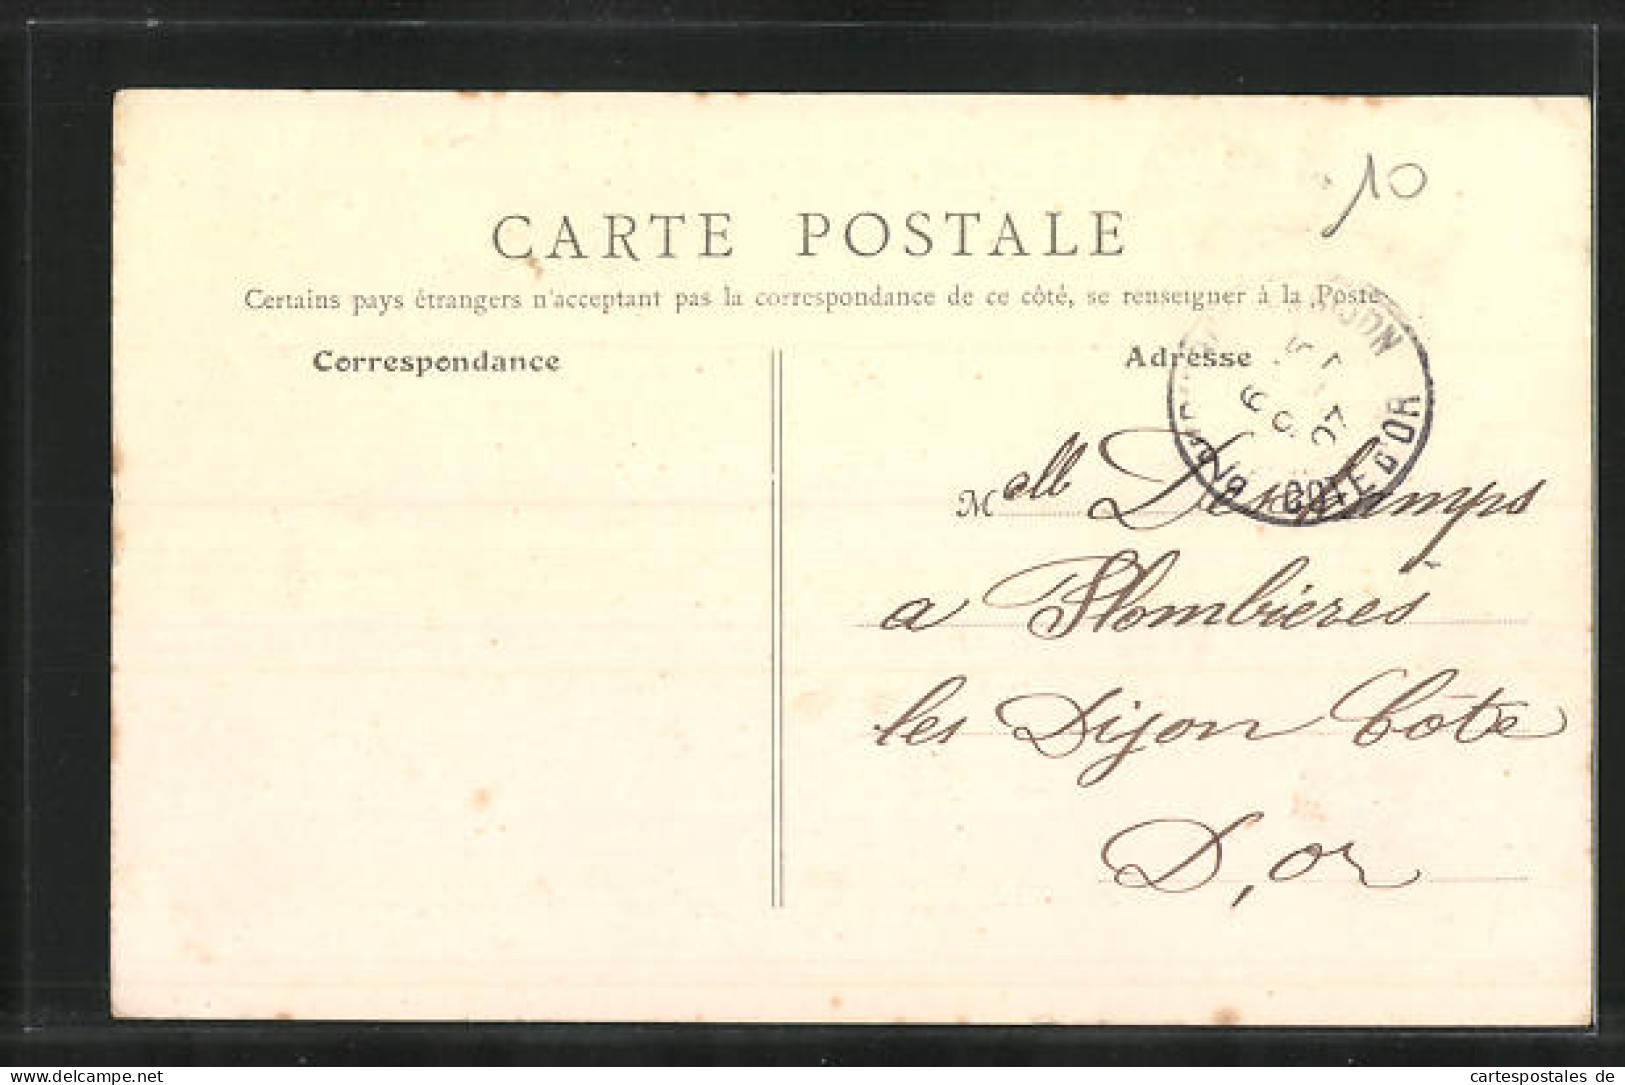 10
CARTE POSTALE
Certains pays étrangers n'acceptant pas la correspondance de ce côté, se renseigner à la Poste
Correspondance
Adresse
DIJON
6 9 07
COTE D'OR
Melle Deschamps
a Plombieres
les Dijon Côte
D,or
delcampe.net
cartespostales de